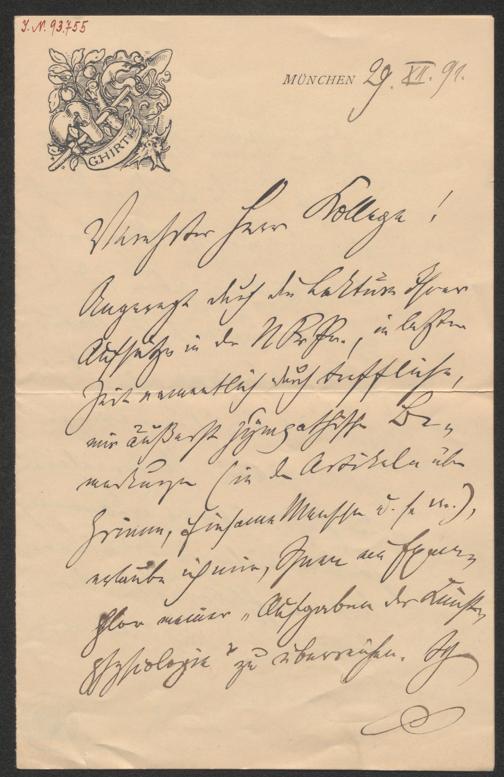 I. N. 93.755
G. HIRTH
MÜNCHEN 29. XII. 91.
Verehrter Herr Kollege!
Angeregt durch die Lektüre Ihrer
Aufsätze in der N. Fr. Pr., in letzter
Zeit namentlich durch treffliche,
mir äußerst sympathische Be-
merkungen (in den Artikeln über
Grimm, Einsame Menschen u. s. w.),
erlaube ich mir, Ihnen ein Exem-
plar meiner „Aufgaben der Kunst-
physiologie" zu überreichen. Ich